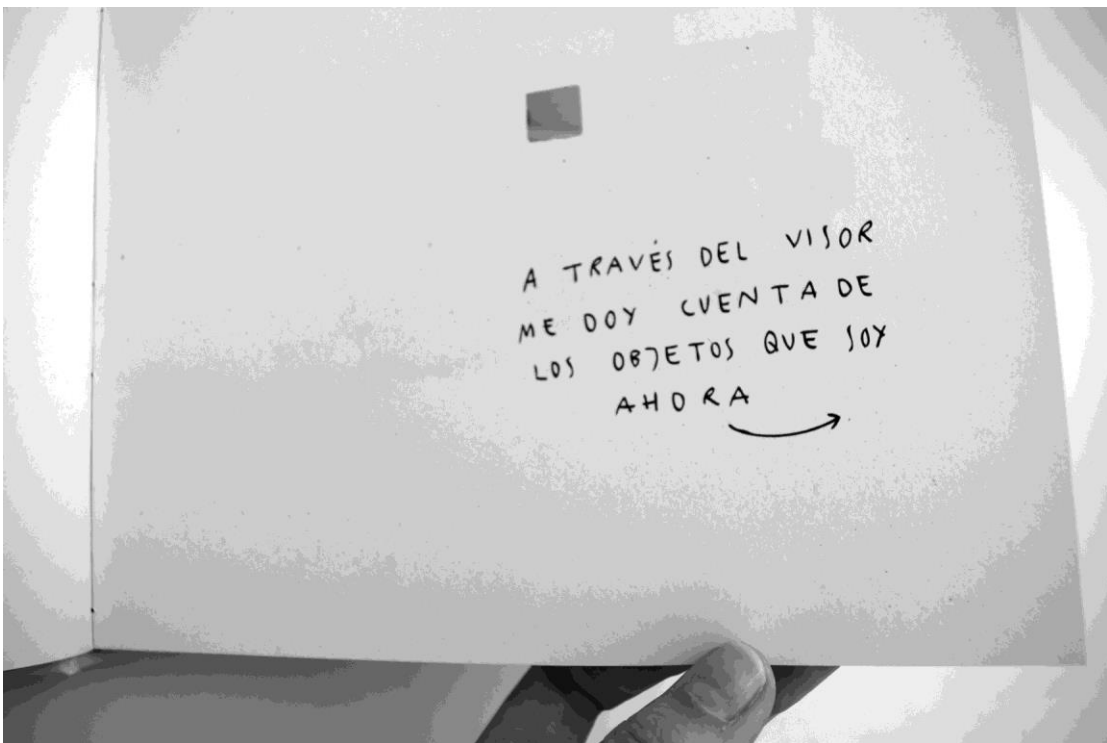 A TRAVÉS DEL VISOR
ME DOY CUENTA DE
LOS OBJETOS QUE SOY
AHORA